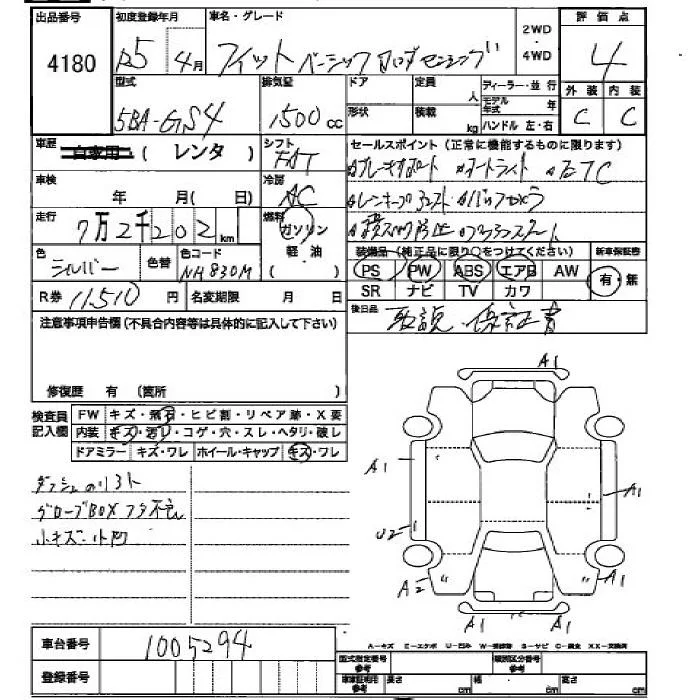 出品番号 初度登録年月 車名・グレード 2WD・4WD 評価点
4180 R5年4月 フィット ベーシック ホンダセンシング 4
型式 排気量 ドア 定員 人 ディーラー・並行 外装 内装
5BA-GS4 1500cc 形状 積載 kg モデル年式 年 ハンドル 左・右 C C
車歴 自家用 ( レンタ ) シフト FAT セールスポイント (正常に機能するものに限ります)
車検 年 月( 日) 冷房 AC
ブレーキサポート オートライト ETC
走行 7万2千202km 燃料 ガソリン 軽油
色 シルバー 色替 色コード NH830M 装備品 (純正品に限り○をつけてください) 新車保証書
PS PW ABS エアB AW 有・無
R券 11,510円 名変期限 月 日 SR ナビ TV カワ
注意事項申告欄 (不具合内容等は具体的に記入して下さい) 後日品 取説・保証書
修復歴 有 (箇所 )
検査員記入欄 FW キズ・飛石・ヒビ割・リペア跡・X要
内装 キズ・汚れ・コゲ・穴・スレ・ヘタリ・破レ
ドアミラー キズ・ワレ ホイール・キャップ キズ・ワレ
A1
A1
A1
U2
A2
A1
A1
A1
小キズ・小凹
A-キズ E-エクボ U-凹み W-補修跡 S-サビ C-腐食 XX-交換済
車台番号 1005294
型式指定番号 参考 類別区分番号 参考
登録番号 車車証明用 参考 長さ cm 幅 cm 高さ cm